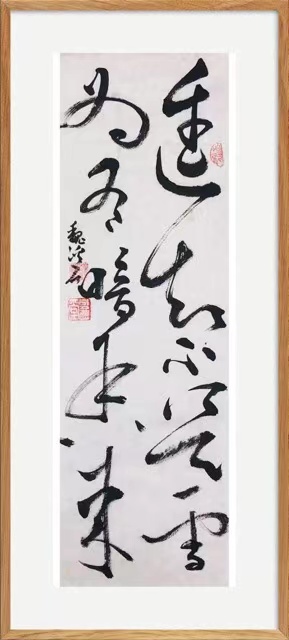 遥知不是雪
为有暗香来
魏